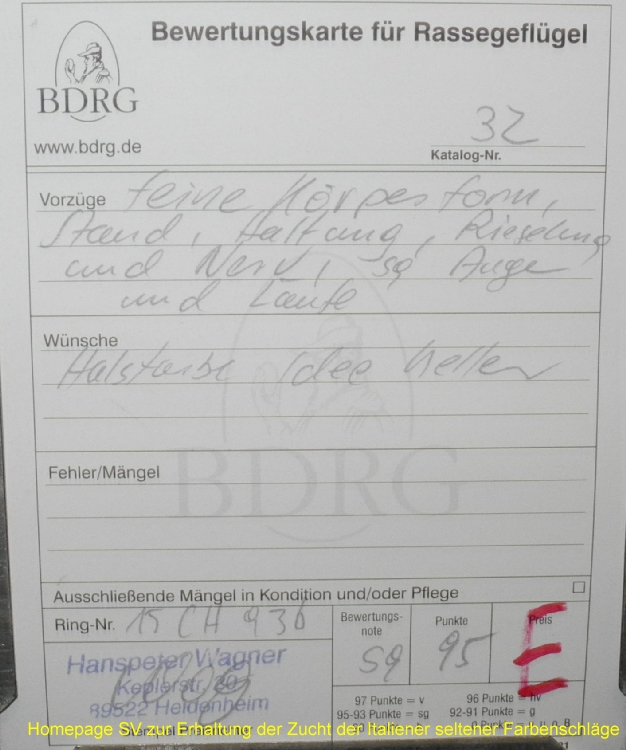 Bewertungskarte für Rassegeflügel
BDRG
www.bdrg.de
32
Katalog-Nr.
Vorzüge feine Körperform,
Stand, Haltung, Rieselung
und Nerv, sg Auge
und Läufe
Wünsche
Halsfarbe Idee heller
BDRG
Fehler/Mängel
Ausschließende Mängel in Kondition und/oder Pflege
Ring-Nr. 15 CH 936
Bewertungs-
note
sg
Punkte
95
Preis
E
Hanspeter Wagner
Keplerstr.
89522 Heidenheim
97 Punkte = v 96 Punkte = hv
95-93 Punkte = sg 92-91 Punkte = g
Homepage SV zur Erhaltung der Zucht der Italiener seltener Farbenschläge